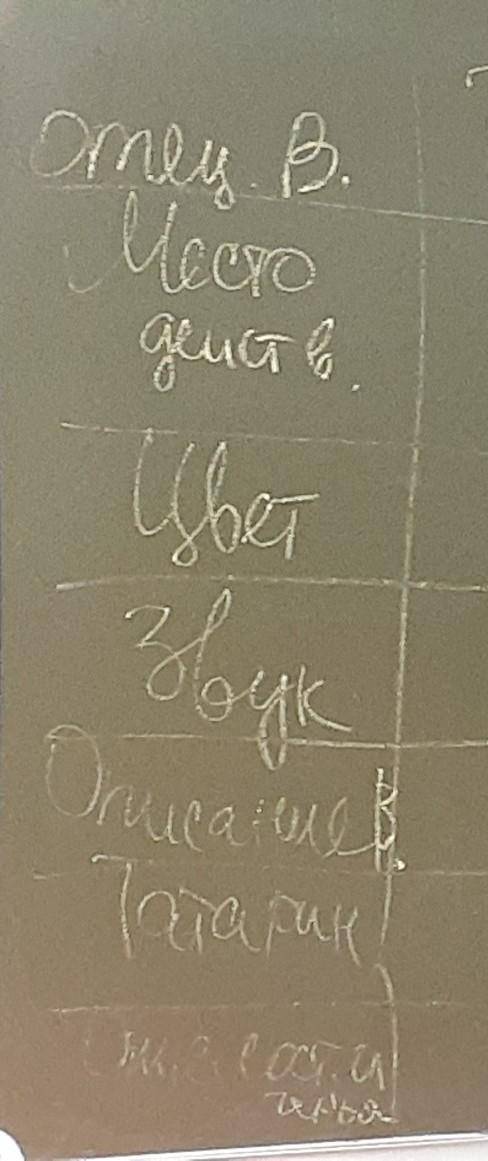 Отец В.
Место
действ.
Цвет
Звук
Описание В.
Татарин